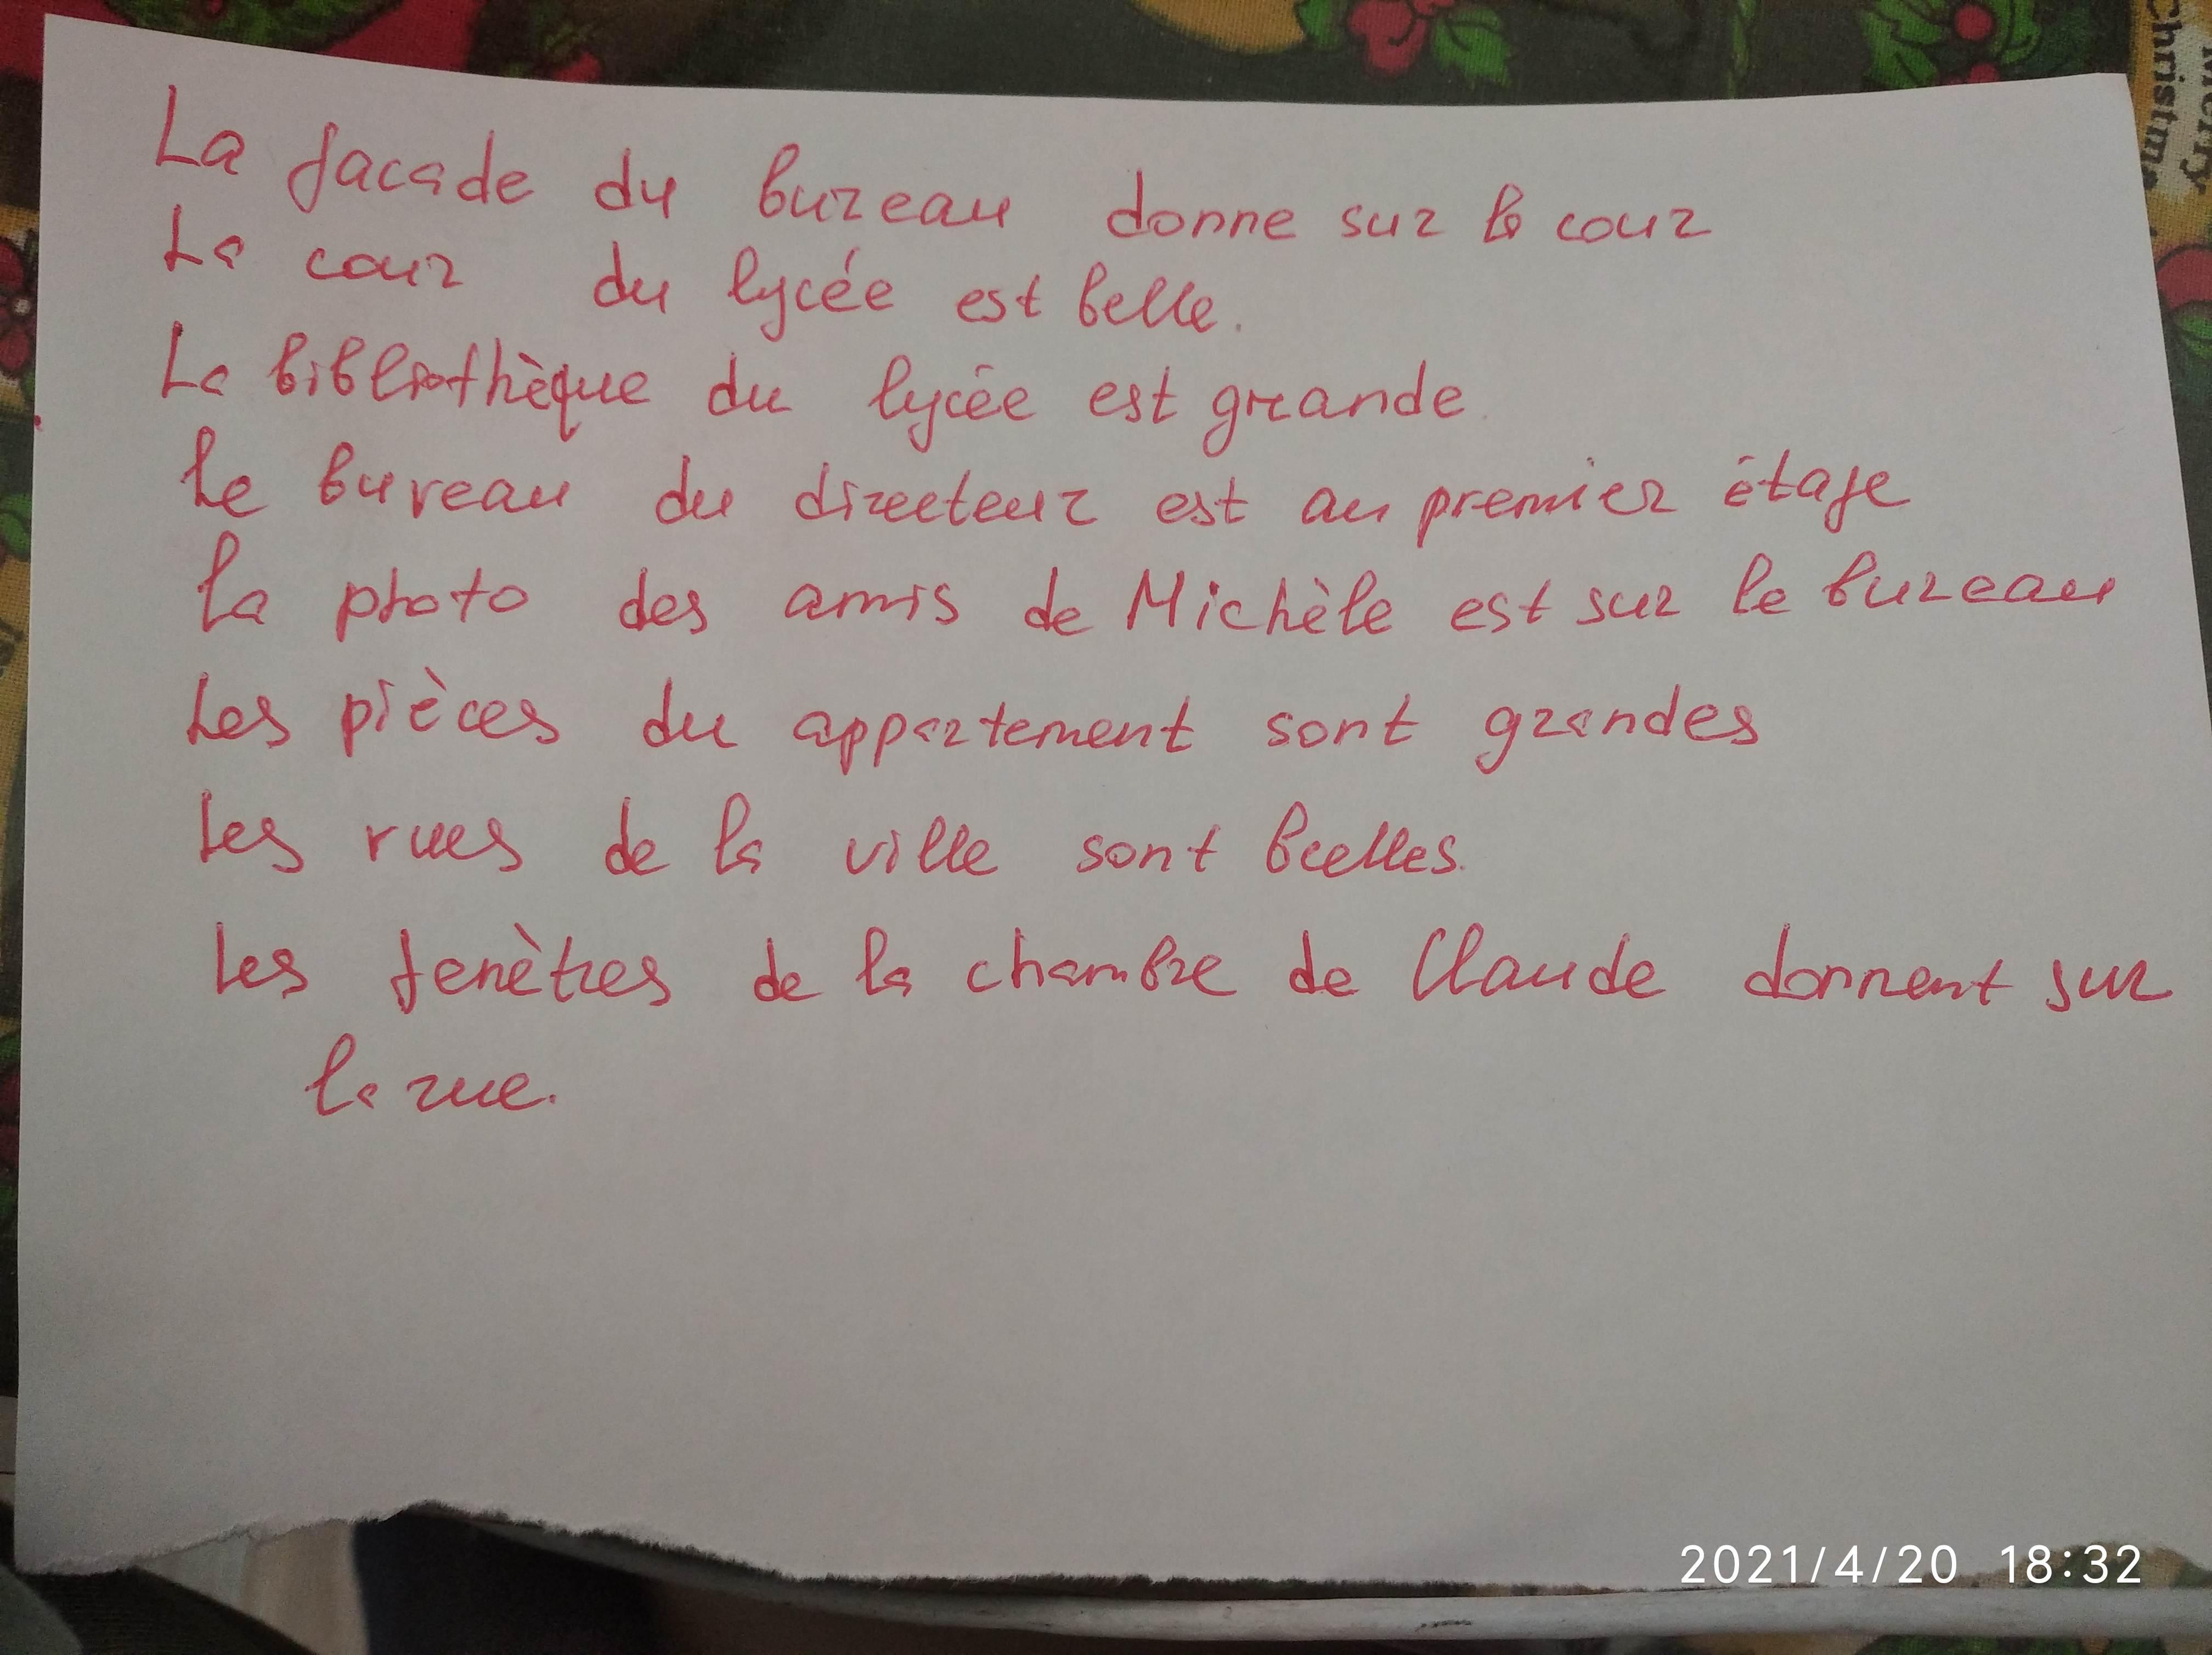 La facade du bureau donne sur la cour
La cour du lycée est belle.
La bibliothèque du lycée est grande
Le bureau du directeur est au premier étage
La photo des amis de Michèle est sur le bureau
Les pièces du appartement sont grandes
Les rues de la ville sont beelles.
Les fenètres de la chambre de Claude donnent sur
la rue.
2021/4/20 18:32
Merry
Christmas